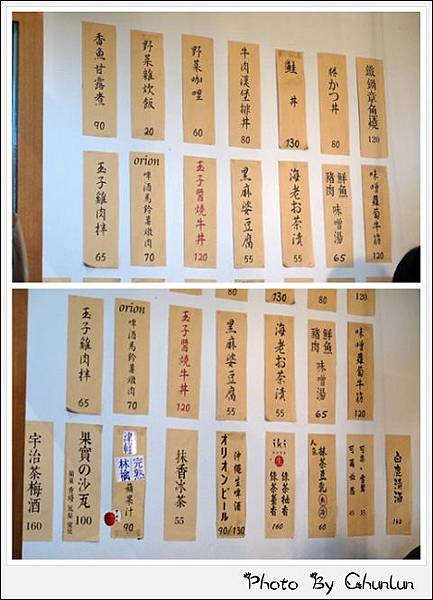 香魚甘露煮 90
野菜雜炊飯 20
野菜咖哩 60
牛肉漢堡排丼 80
鮭丼 130
豚かつ丼 80
鐵鍋章魚燒 120
玉子雞肉拌 65
orion
啤酒馬鈴薯燉肉 70
玉子醬燒牛丼 120
黑麻婆豆腐 55
海老お茶漬 55
鮮魚
豬肉
味噌湯 65
味噌蘿蔔牛筋 120
80
130
80
120
玉子雞肉拌 65
orion
啤酒馬鈴薯燉肉 70
玉子醬燒牛丼 120
黑麻婆豆腐 55
海老お茶漬 55
鮮魚
豬肉
味噌湯 65
味噌蘿蔔牛筋 120
宇治茶梅酒 160
果實の沙瓦 100
津輕
完熟
林檎
蘋果汁 90
抹香氷茶 55
沖繩生啤酒
オリオンビール 90/130
iki
綠茶柚香
綠茶薑香 160
人氣
抹茶豆乳 60
可樂
可爾必思 45
35
白鹿清酒 160
Photo By Ghunlun